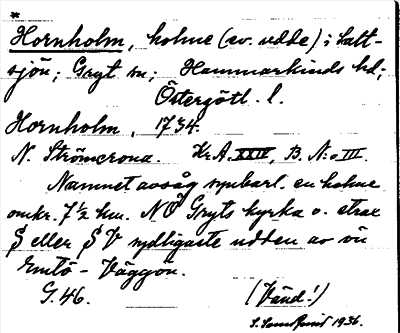 *
Hornholm, holme (ev. udde) i Salt-
sjön; Gryt sn; Hammarkinds hd;
Östergötl. l.
Hornholm, 1734.
N. Strömcrona. Kr.A. XXIV, B. N:o III.
Namnet avsåg synbarl. en holme
omkr. 7 1/2 km. NÖ Gryts kyrka o. strax
S eller SV sydligaste udden av ön
Emtö - Väggön.
G. 46.
(Vänd!)
1936.